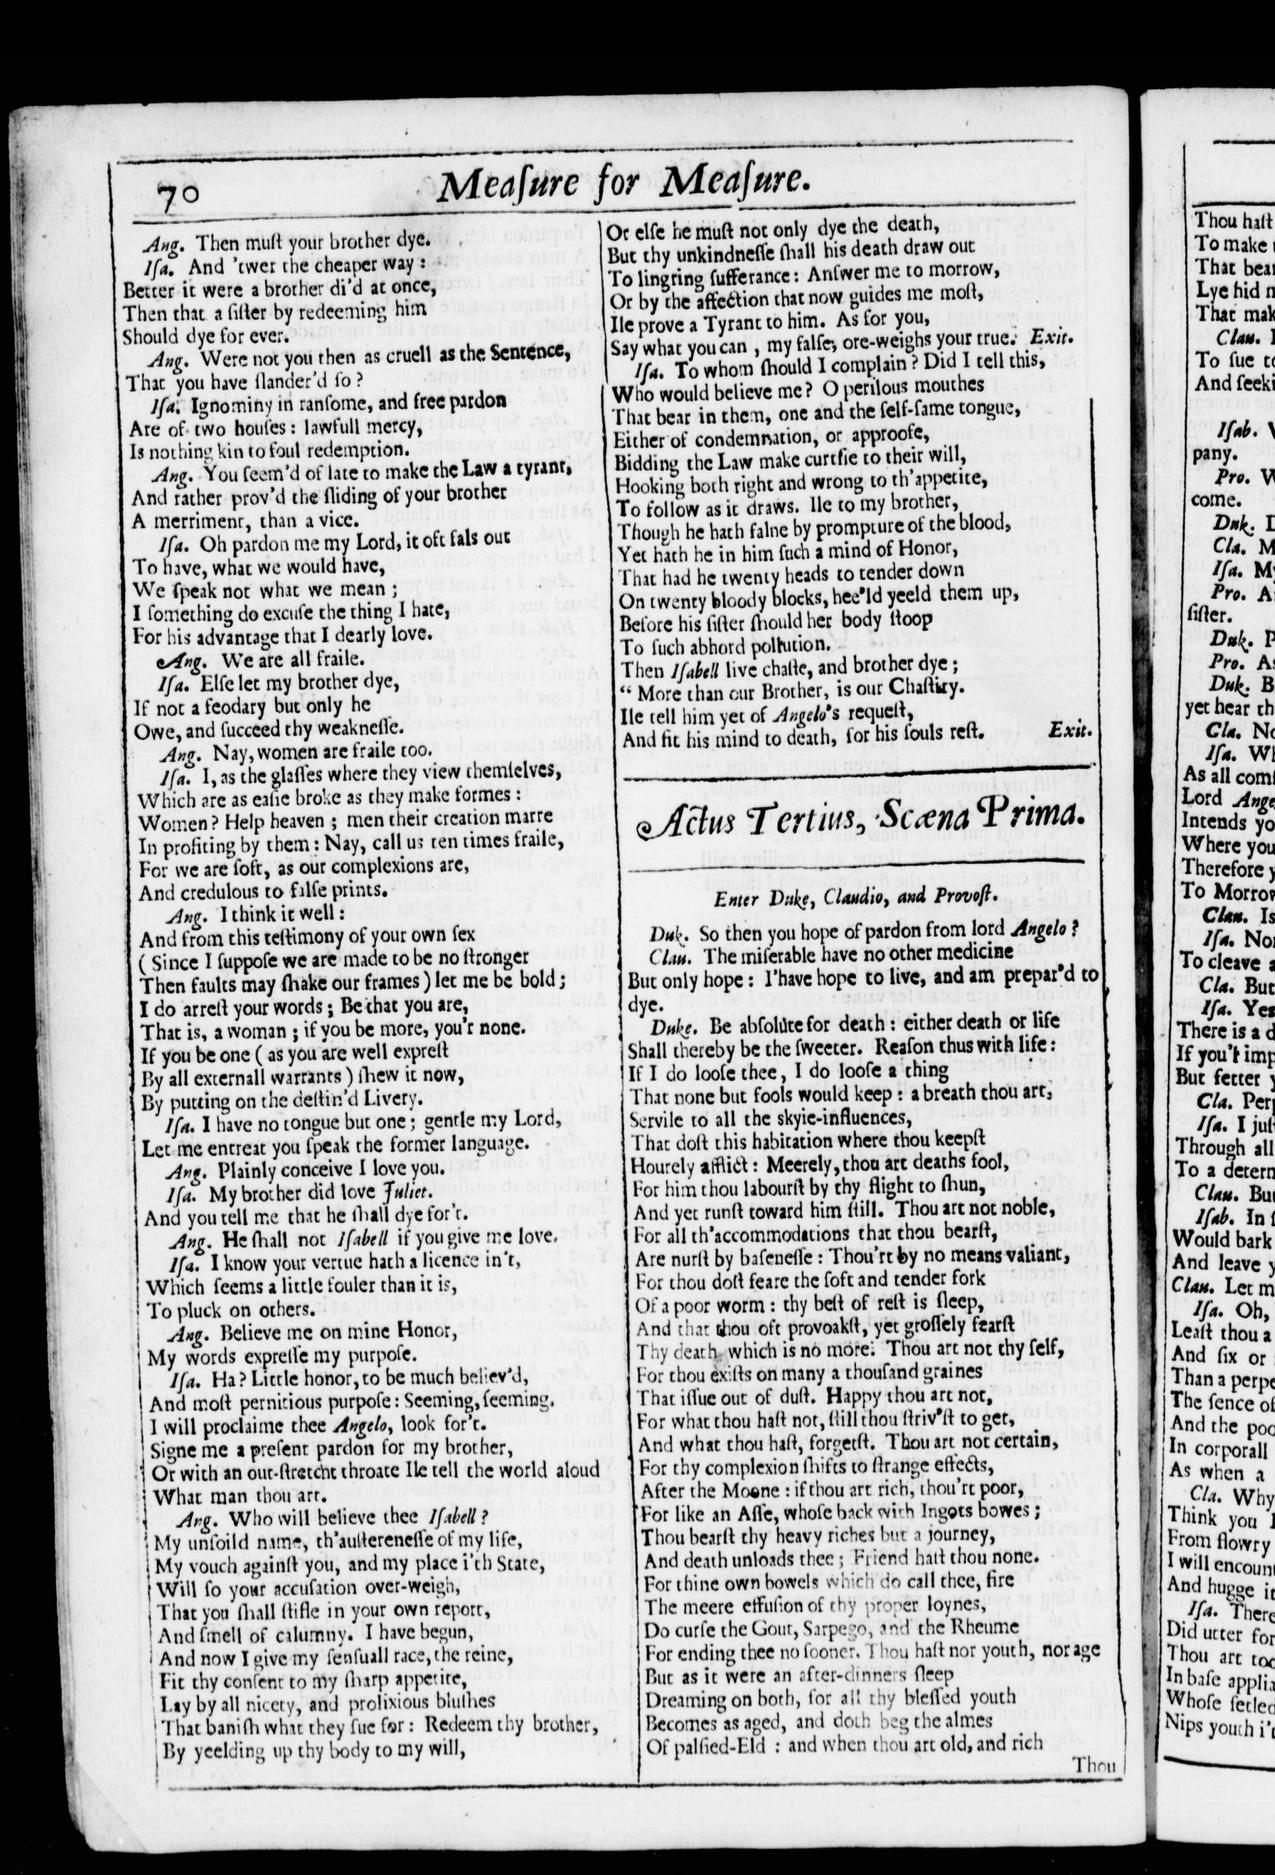 70
Meaſure for Meaſure.
Ang. Then muſt your brother dye.
Iſa. And 'twer the cheaper way:
Better it were a brother di'd at once,
Then that a ſiſter by redeeming him
Should dye for ever.
Ang. Were not you then as cruell as the Sentence,
That you have ſlander'd ſo?
Iſa. Ignominy in ranſome, and free pardon
Are of two houſes: lawfull mercy,
Is nothing kin to foul redemption.
Ang. You ſeem'd of late to make the Law a tyrant,
And rather prov'd the ſliding of your brother
A merriment, than a vice.
Iſa. Oh pardon me my Lord, it oft fals out
To have, what we would have,
We ſpeak not what we mean;
I ſomething do excuſe the thing I hate,
For his advantage that I dearly love.
Ang. We are all fraile.
Iſa. Elſe let my brother dye,
If not a feodary but only he
Owe, and ſucceed thy weakneſſe.
Ang. Nay, women are fraile too.
Iſa. I, as the glaſſes where they view themſelves,
Which are as eaſie broke as they make formes:
Women? Help heaven; men their creation marre
In profiting by them: Nay, call us ten times fraile,
For we are ſoft, as our complexions are,
And credulous to falſe prints.
Ang. I think it well:
And from this teſtimony of your own ſex
(Since I ſuppoſe we are made to be no ſtronger
Then faults may ſhake our frames) let me be bold;
I do arreſt your words; Be that you are,
That is, a woman; if you be more, you'r none.
If you be one (as you are well expreſt
By all externall warrants) ſhew it now,
By putting on the deſtin'd Livery.
Iſa. I have no tongue but one; gentle my Lord,
Let me entreat you ſpeak the former language.
Ang. Plainly conceive I love you.
Iſa. My brother did love Juliet.
And you tell me that he ſhall dye for't.
Ang. He ſhall not Iſabell if you give me love.
Iſa. I know your vertue hath a licence in't,
Which ſeems a little fouler than it is,
To pluck on others.
Ang. Believe me on mine Honor,
My words expreſſe my purpoſe.
Iſa. Ha? Little honor, to be much believ'd,
And moſt pernitious purpoſe: Seeming, ſeeming.
I will proclaime thee Angelo, look for't.
Signe me a preſent pardon for my brother,
Or with an out-ſtretcht throate Ile tell the world aloud
What man thou art.
Ang. Who will believe thee Iſabell?
My unſoild name, th'auſtereneſſe of my life,
My vouch againſt you, and my place i'th State,
Will ſo your accuſation over-weigh,
That you ſhall ſtifle in your own report,
And ſmell of calumny. I have begun,
And now I give my ſenſuall race, the reine,
Fit thy conſent to my ſharp appetite,
Lay by all nicety, and prolixious bluſhes
That baniſh what they ſue for: Redeem thy brother,
By yeelding up thy body to my will,
Or elſe he muſt not only dye the death,
But thy unkindneſſe ſhall his death draw out
To lingring ſufferance: Anſwer me to morrow,
Or by the affection that now guides me moſt,
Ile prove a Tyrant to him. As for you,
Say what you can, my falſe, ore-weighs your true. Exit.
Iſa. To whom ſhould I complain? Did I tell this,
Who would believe me? O perilous mouthes
That bear in them, one and the ſelf-ſame tongue,
Either of condemnation, or approofe,
Bidding the Law make curtſie to their will,
Hooking both right and wrong to th'appetite,
To follow as it draws. Ile to my brother,
Though he hath falne by prompture of the blood,
Yet hath he in him ſuch a mind of Honor,
That had he twenty heads to tender down
On twenty bloody blocks, hee'ld yeeld them up,
Before his ſiſter ſhould her body ſtoop
To ſuch abhord pollution.
Then Iſabell live chaſte, and brother dye;
“ More than our Brother, is our Chaſtity.
Ile tell him yet of Angelo's requeſt,
And fit his mind to death, for his ſouls reſt. Exit.
Actus Tertius, Scæna Prima.
Enter Duke, Claudio, and Provoſt.
Duk. So then you hope of pardon from lord Angelo?
Clau. The miſerable have no other medicine
But only hope: I'have hope to live, and am prepar'd to
dye.
Duke. Be abſolute for death: either death or life
Shall thereby be the ſweeter. Reaſon thus with life:
If I do looſe thee, I do looſe a thing
That none but fools would keep: a breath thou art,
Servile to all the skyie-influences,
That doſt this habitation where thou keepſt
Hourely afflict: Meerely, thou art deaths fool,
For him thou labourſt by thy flight to ſhun,
And yet runſt toward him ſtill. Thou art not noble,
For all th'accommodations that thou bearſt,
Are nurſt by baſeneſſe: Thou'rt by no means valiant,
For thou doſt feare the ſoft and tender fork
Of a poor worm: thy beſt of reſt is ſleep,
And that thou oft provoakſt, yet groſſely fearſt
Thy death which is no more. Thou art not thy ſelf,
For thou exiſts on many a thouſand graines
That iſſue out of duſt. Happy thou art not,
For what thou haſt not, ſtill thou ſtriv'ſt to get,
And what thou haſt, forgetſt. Thou art not certain,
For thy complexion ſhifts to ſtrange effects,
After the Moone: if thou art rich, thou'rt poor,
For like an Aſſe, whoſe back with Ingots bowes;
Thou bearſt thy heavy riches but a journey,
And death unloads thee; Friend haſt thou none.
For thine own bowels which do call thee, fire
The meere effuſion of thy proper loynes,
Do curſe the Gout, Sarpego, and the Rheume
For ending thee no ſooner. Thou haſt nor youth, nor age
But as it were an after-dinners ſleep
Dreaming on both, for all thy bleſſed youth
Becomes as aged, and doth beg the almes
Of palſied-Eld: and when thou art old, and rich
Thou
Thou haſt
To make
That bear
Lye hid
That mak
Clau.
To ſue to
And ſeeki
Iſab.
pany.
Pro.
come.
Duk.
Cla.
Iſa. My
Pro.
ſiſter.
Duk.
Pro. As
Duk. B
yet hear th
Cla. No
Iſa. Wh
As all comf
Lord Ange
Intends yo
Where you
Therefore y
To Morrow
Clau. Is
Iſa. Non
To cleave a
Cla. But
Iſa. Yes
There is a d
If you'l imp
But fetter y
Cla. Perp
Iſa. I juſ
Through all
To a determ
Clau. But
Iſab. In ſ
Would bark
And leave y
Clau. Let m
Iſa. Oh,
Leaſt thou a
And ſix or
Than a perpe
The ſence of
And the poo
In corporall
As when a
Cla. Why
Think you I
From flowry
I will encount
And hugge it
Iſa. There
Did utter for
Thou art too
In baſe applia
Whoſe ſetled
Nips youth i't